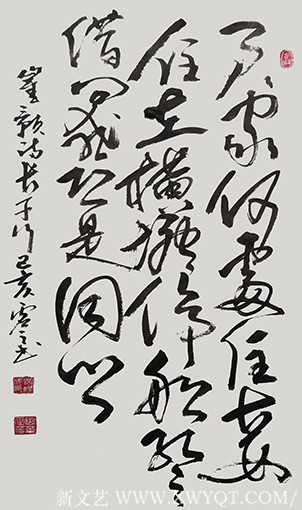 君家何處住妾
住在橫塘停船暫
借問或恐是同鄉
崔顥詩長干行己亥
新文艺 WWW.XWYQT.COM